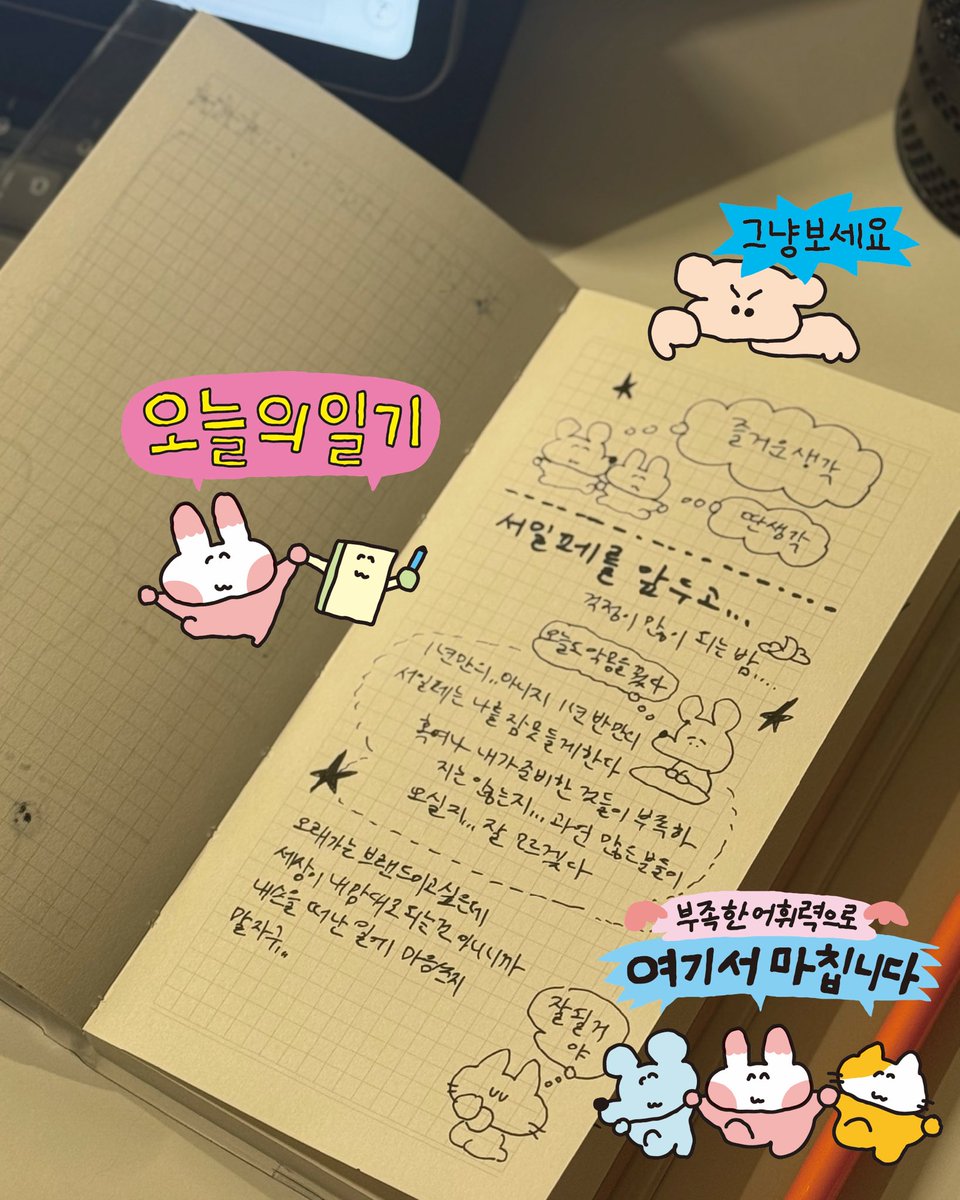 그냥보세요
오늘의일기
즐거운생각
딴생각
서일페를 앞두고...
걱정이 많이 되는밤....
오늘도악몽을꿨다
1년만의..아니지 1년반만의
서일페는 나를 잠못들게한다
혹여나 내가준비한 것들이 부족하
지는 않는지... 과연 많은분들이
오실지... 잘 모르겠다
오래가는 브랜드이고싶은데
세상이 내맘대로 되는건 아니니까
내손을 떠난 일에 마음쓰지
말자구..
잘될거
야
부족한어휘력으로
여기서마칩니다